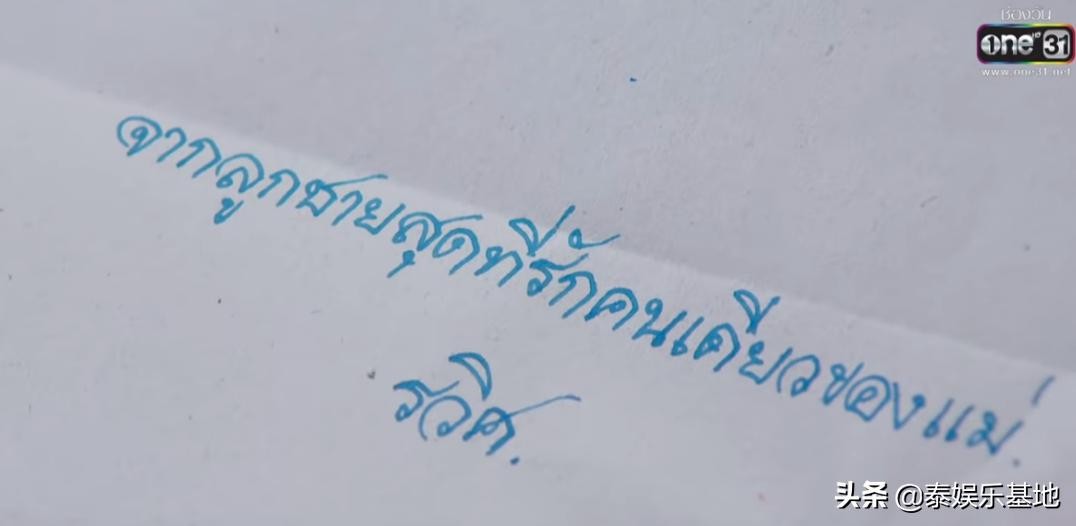 ช่องวัน
one HD 31
www.one31.net
จากลูกชายสุดที่รักคนเดียวของแม่.
รวิศ.
头条 @泰娱乐基地